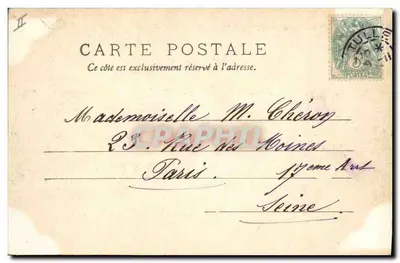 II
CARTE POSTALE
Ce côté est exclusivement réservé à l'adresse.
TULLINS
Mademoiselle M. Chéron
25. Rue des Moines
Paris. 17eme Arrt
Seine.